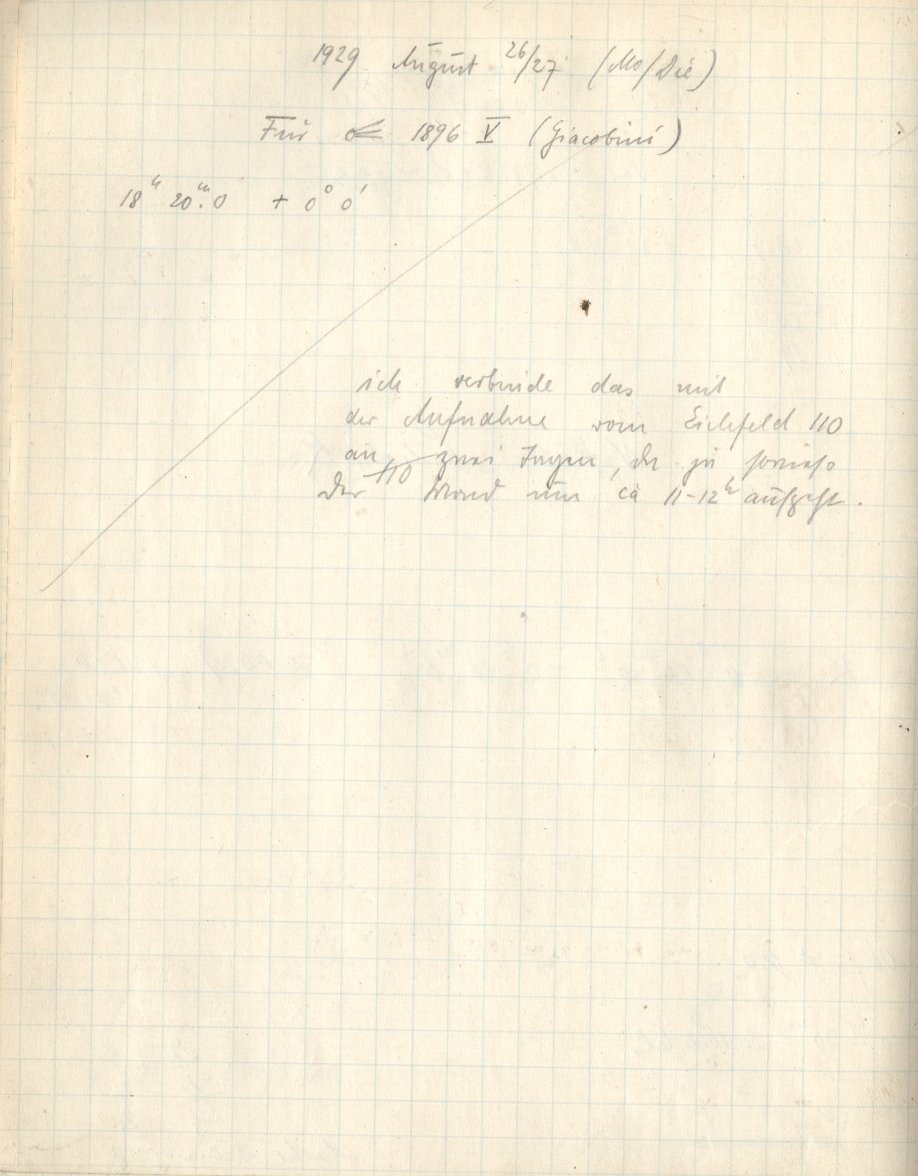 1929 August 26/27 (Mo/Die)
Für ☄ 1896 V (Giacobini)
18ʰ 20ᵐ.0 + 0° 0'
ich verbinde das mit
der Aufnahme vom Eichfeld 110
an zwei Tagen, da ja sowieso
der Mond um ca 11-12ʰ aufgeht.